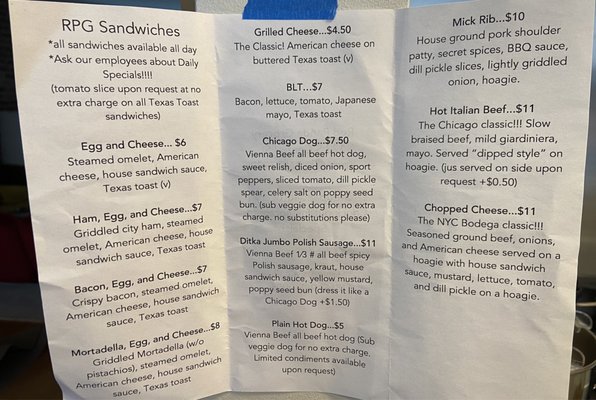 RPG Sandwiches
*all sandwiches available all day
*Ask our employees about Daily
Specials!!!!
(tomato slice upon request at no
extra charge on all Texas Toast
sandwiches)
Egg and Cheese... $6
Steamed omelet, American
cheese, house sandwich sauce,
Texas toast (v)
Ham, Egg, and Cheese...$7
Griddled city ham, steamed
omelet, American cheese, house
sandwich sauce, Texas toast
Bacon, Egg, and Cheese...$7
Crispy bacon, steamed omelet,
American cheese, house sandwich
sauce, Texas toast
Mortadella, Egg, and Cheese...$8
Griddled Mortadella (w/o
pistachios), steamed omelet,
American cheese, house sandwich
sauce, Texas toast
Grilled Cheese...$4.50
The Classic! American cheese on
buttered Texas toast (v)
BLT...$7
Bacon, lettuce, tomato, Japanese
mayo, Texas toast
Chicago Dog...$7.50
Vienna Beef all beef hot dog,
sweet relish, diced onion, sport
peppers, sliced tomato, dill pickle
spear, celery salt on poppy seed
bun. (sub veggie dog for no extra
charge. no substitutions please)
Ditka Jumbo Polish Sausage...$11
Vienna Beef 1/3 # all beef spicy
Polish sausage, kraut, house
sandwich sauce, yellow mustard,
poppy seed bun (dress it like a
Chicago Dog +$1.50)
Plain Hot Dog...$5
Vienna Beef all beef hot dog (Sub
veggie dog for no extra charge,
Limited condiments available
upon request)
Mick Rib...$10
House ground pork shoulder
patty, secret spices, BBQ sauce,
dill pickle slices, lightly griddled
onion, hoagie.
Hot Italian Beef...$11
The Chicago classic!!! Slow
braised beef, mild giardiniera,
mayo. Served "dipped style" on
hoagie. (jus served on side upon
request +$0.50)
Chopped Cheese...$11
The NYC Bodega classic!!!
Seasoned ground beef, onions,
and American cheese served on a
hoagie with house sandwich
sauce, mustard, lettuce, tomato,
and dill pickle on a hoagie.